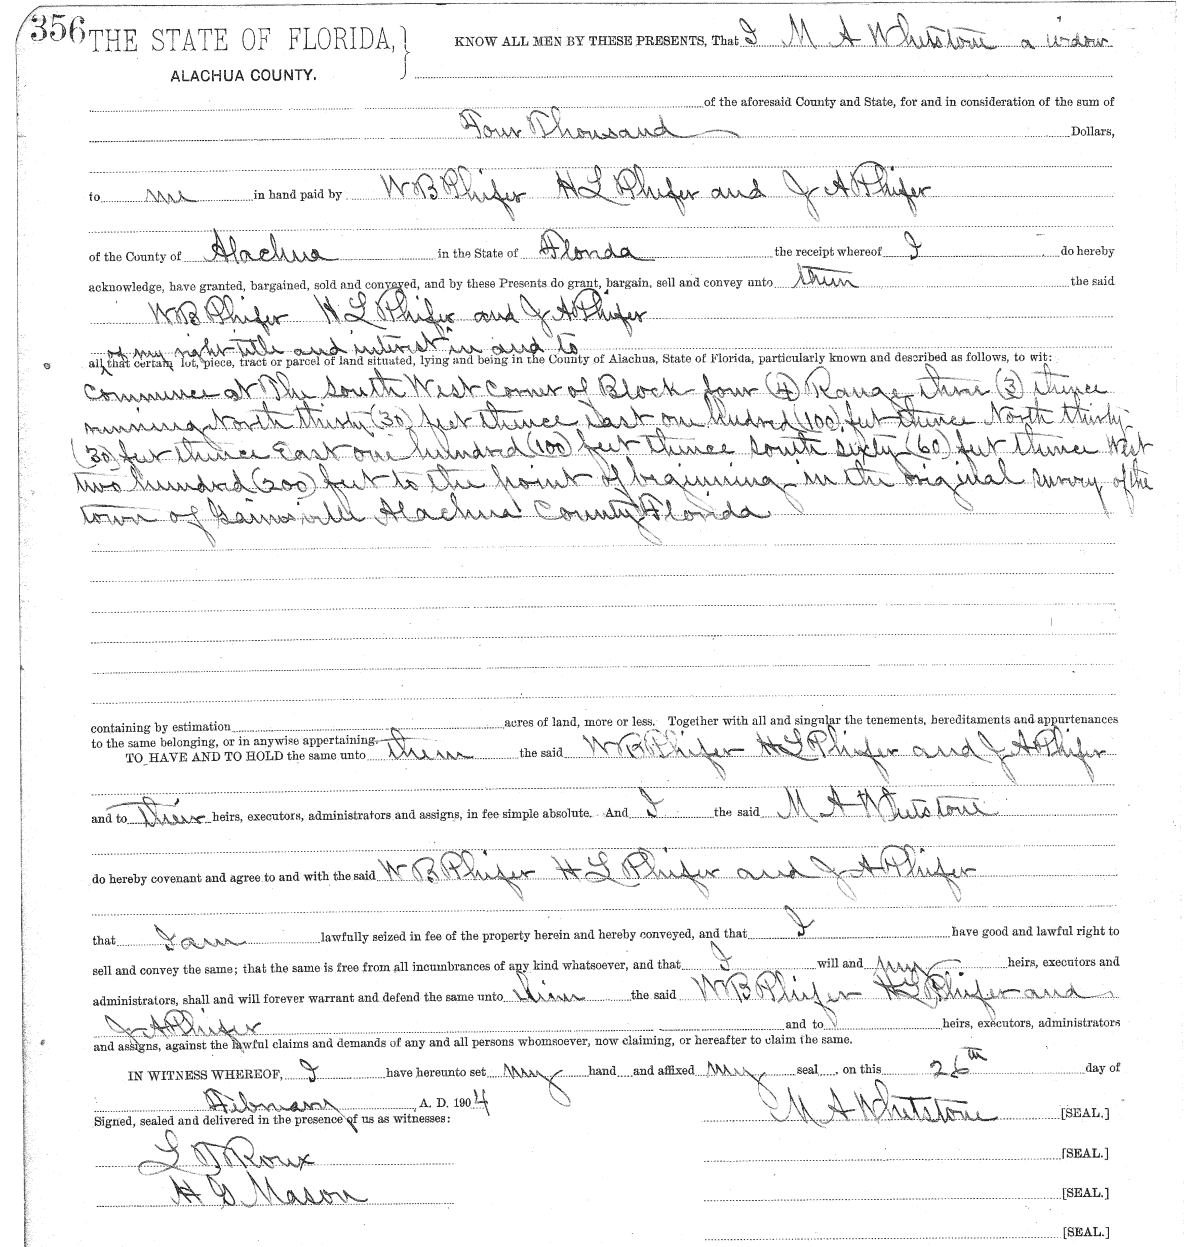 356 THE STATE OF FLORIDA, KNOW ALL MEN BY THESE PRESENTS, That I M A Whetstone a widow
ALACHUA COUNTY.
of the aforesaid County and State, for and in consideration of the sum of
Four Thousand Dollars,
to me in hand paid by W B Phifer H L Phifer and J A Phifer
of the County of Alachua in the State of Florida the receipt whereof I do hereby
acknowledge, have granted, bargained, sold and conveyed, and by these Presents do grant, bargain, sell and convey unto them the said
W B Phifer H L Phifer and J A Phifer
of my right title and interest in and to
all that certain lot, piece, tract or parcel of land situated, lying and being in the County of Alachua, State of Florida, particularly known and described as follows, to wit:
Commence at The South West Corner of Block four (4) Range three (3) thence
running North thirty (30) feet thence East one hundred (100) feet thence North thirty
(30) feet thence East one hundred (100) feet thence South sixty (60) feet thence West
two hundred (200) feet to the point of beginning in the original survey of the
town of Gainsville Alachua County Florida
containing by estimation acres of land, more or less. Together with all and singular the tenements, hereditaments and appurtenances
to the same belonging, or in anywise appertaining.
TO HAVE AND TO HOLD the same unto them the said W B Phifer H L Phifer and J A Phifer
and to their heirs, executors, administrators and assigns, in fee simple absolute. And I the said M A Whetstone
do hereby covenant and agree to and with the said W B Phifer H L Phifer and J A Phifer
that I am lawfully seized in fee of the property herein and hereby conveyed, and that I have good and lawful right to
sell and convey the same; that the same is free from all incumbrances of any kind whatsoever, and that I will and my heirs, executors and
administrators, shall and will forever warrant and defend the same unto them the said W B Phifer H L Phifer and
J A Phifer and to heirs, executors, administrators
and assigns, against the lawful claims and demands of any and all persons whomsoever, now claiming, or hereafter to claim the same.
IN WITNESS WHEREOF, I have hereunto set my hand and affixed my seal on this 26th day of
February, A. D. 1904
M A Whetstone [SEAL.]
Signed, sealed and delivered in the presence of us as witnesses:
L T Roux [SEAL.]
H G Mason [SEAL.]
[SEAL.]